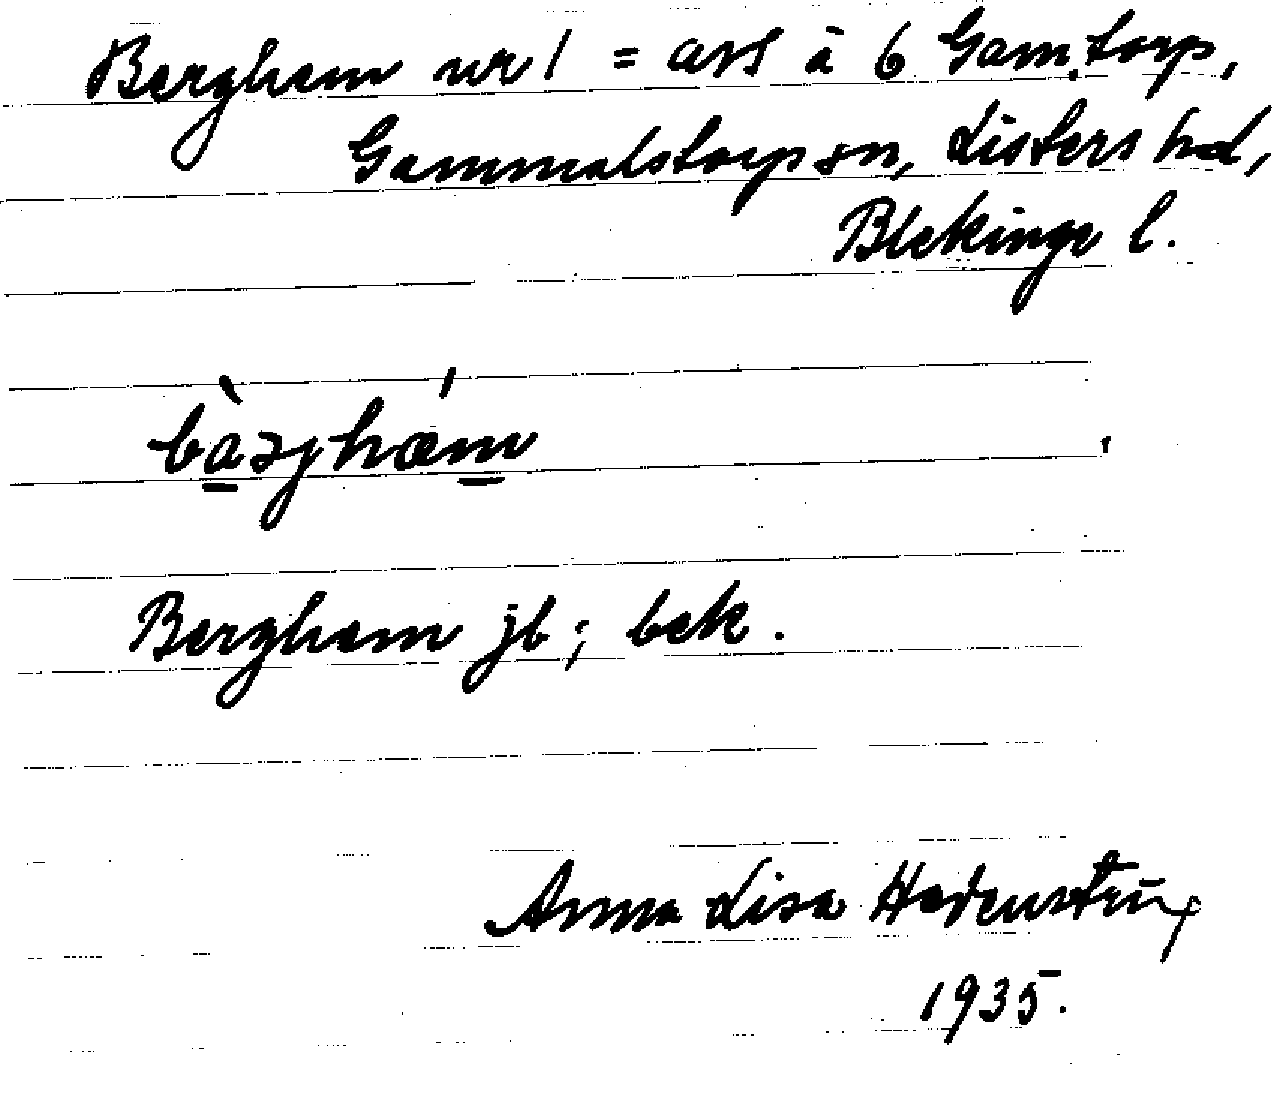 Bergham nr 1 = avs å 6 Gam.torp,
Gammalstorps sn, Listers hd,
Blekinge l.
bàrjhǽm
Bergham jb; bek.
Anna Lisa
1935.